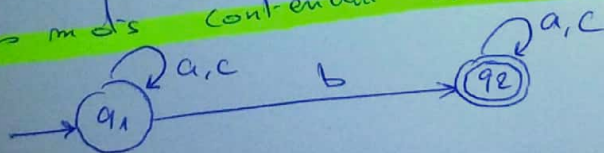 mots
a, c
a, c
b
q1
q2